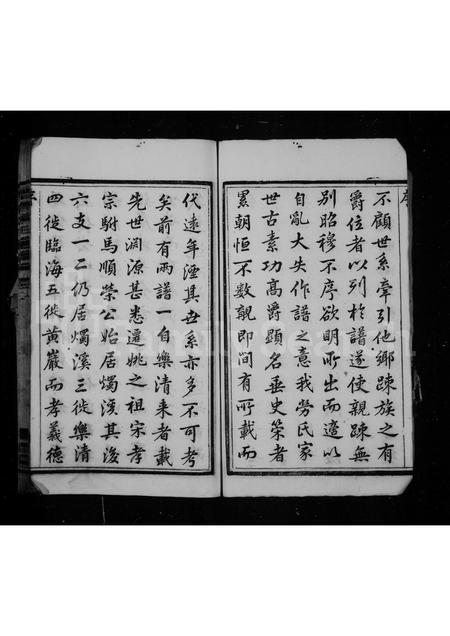 序
不顧世系牽引他鄉踈族之有
爵位者以列於譜遂使親踈無
別昭穆不序欲明所出而適以
自亂大失作譜之意我勞氏家
世古素功高爵顯名垂史筞者
累朝恒不数覯即間有所載而
代遠年湮其世系亦多不可考
矣前有兩譜一自樂清来者載
先世渊源甚悉遷姚之祖宗孝
宗駙馬順榮公始居燭溪其後
六支一二仍居燭溪三徙樂清
四徙臨海五徙黄巖而孝義德
序